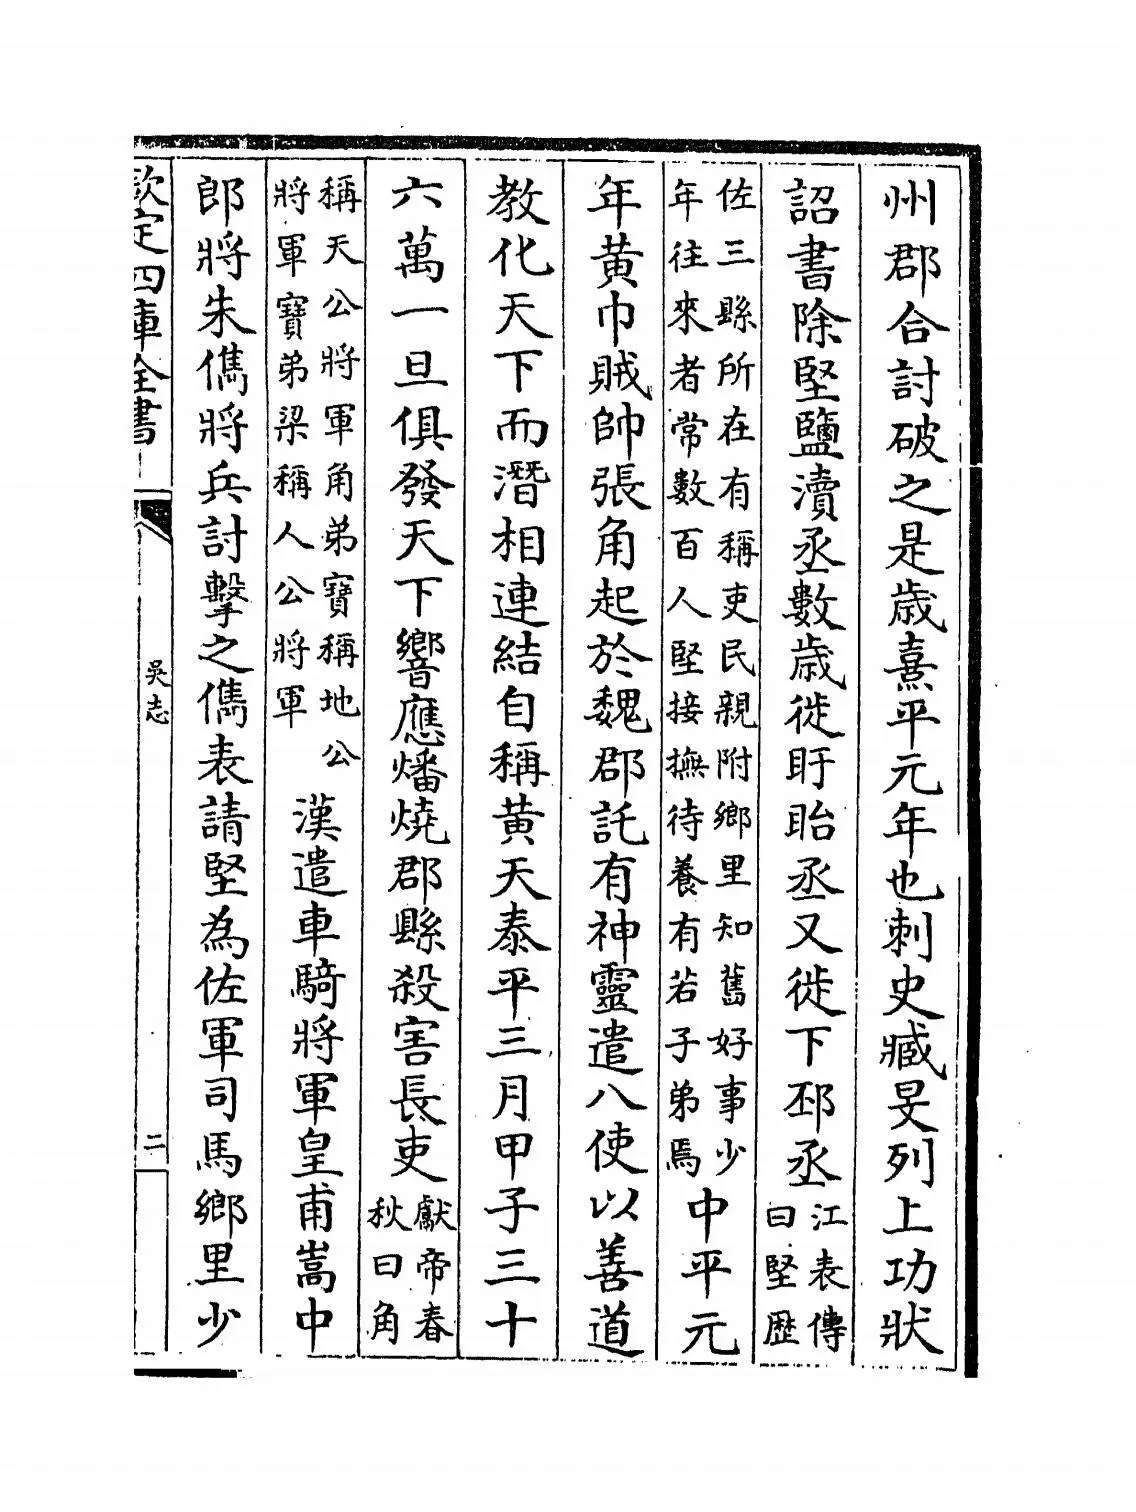 州郡合討破之是歳熹平元年也刺史臧旻列上功狀
詔書除堅鹽瀆丞數歳徙盱眙丞又徙下邳丞江表傳
曰堅歴
佐三縣所在有稱吏民親附鄉里知舊好事少
年往來者常數百人堅接撫待養有若子弟焉
中平元
年黄巾賊帥張角起於魏郡託有神靈遣八使以善道
教化天下而潛相連結自稱黄天泰平三月甲子三十
六萬一旦俱發天下響應燔燒郡縣殺害長吏獻帝春
秋曰角
稱天公將軍角弟寶稱地公
將軍寶弟梁稱人公將軍
漢遣車騎將軍皇甫嵩中
郎將朱儁將兵討擊之儁表請堅為佐軍司馬鄉里少
欽定四庫全書
吳志
二